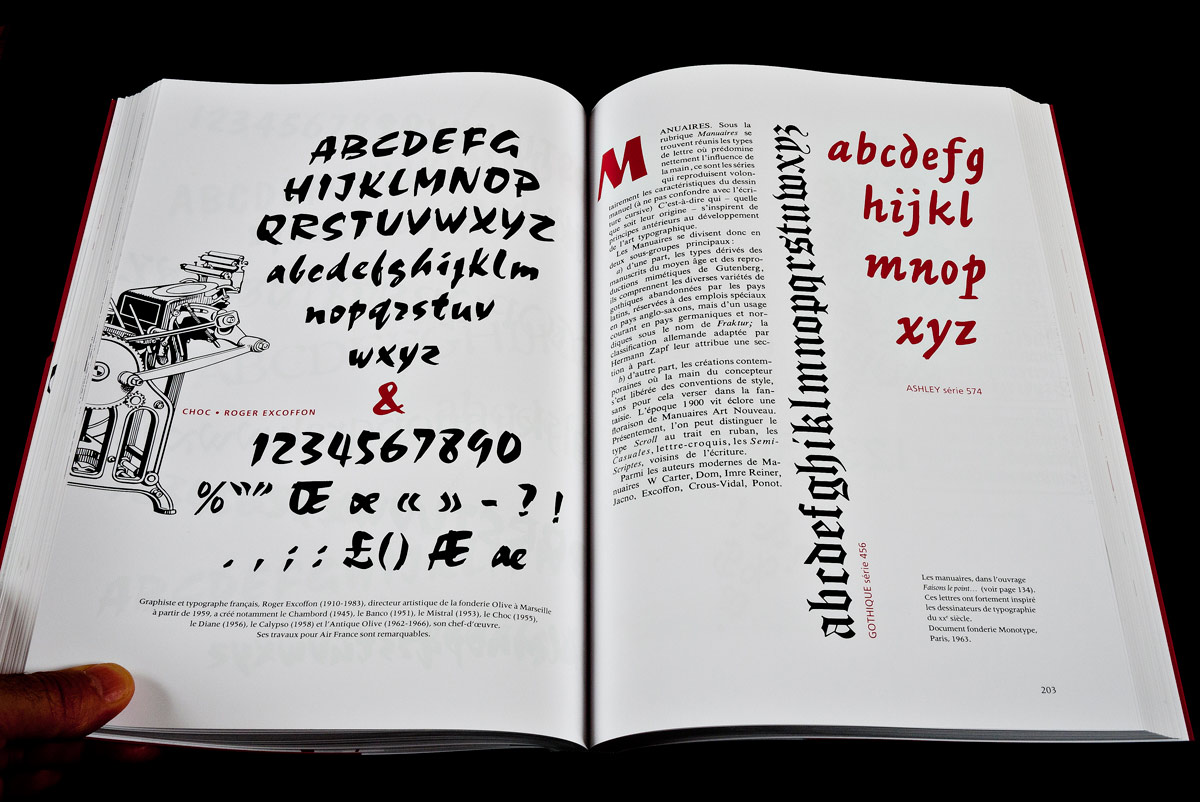 ABCDEFG
HIJKLMNOP
QRSTUVWXYZ
abcdefghijklm
nopqrstuv
wxyz
&
CHOC • ROGER EXCOFFON
1234567890
% “” Œ œ « » - ? !
. , ; : £ ( ) Æ æ
Graphiste et typographe français, Roger Excoffon (1910-1983), directeur artistique de la fonderie Olive à Marseille
à partir de 1959, a créé notamment le Chambord (1945), le Banco (1951), le Mistral (1953), le Choc (1955),
le Diane (1956), le Calypso (1958) et l’Antique Olive (1962-1966), son chef-d’œuvre.
Ses travaux pour Air France sont remarquables.
MANUAIRES. Sous la
rubrique Manuaires se
trouvent réunis les types
de lettre où prédomine
nettement l’influence de
la main, ce sont les séries
qui reproduisent volon-
tairement les caractéristiques du dessin
manuel (à ne pas confondre avec l’écri-
ture cursive) C’est-à-dire qui – quelle
que soit leur origine – s’inspirent de
principes antérieurs au développement
de l’art typographique.
Les Manuaires se divisent donc en
deux sous-groupes principaux :
a) d’une part, les types dérivés des
manuscrits du moyen âge et des repro-
ductions mimétiques de Gutenberg,
ils comprennent les diverses variétés de
gothiques abandonnées par les pays
latins, réservées à des emplois spéciaux
en pays anglo-saxons, mais d’un usage
courant en pays germaniques et nor-
diques sous le nom de Fraktur; la
classification allemande adaptée par
Hermann Zapf leur attribue une sec-
tion à part.
b) d’autre part, les créations contem-
poraines où la main du concepteur
s’est libérée des conventions de style,
sans pour cela verser dans la fan-
taisie. L’époque 1900 vit éclore une
floraison de Manuaires Art Nouveau.
Présentement, l’on peut distinguer le
type Scroll au trait en ruban, les
Casuales, lettre-croquis, les Semi-
Scriptes, voisins de l’écriture.
Parmi les auteurs modernes de Ma-
nuaires W Carter, Dom, Imre Reiner,
Jacno, Excoffon, Crous-Vidal, Ponot.
abcdefghijklmnopqrstuvwxyz
GOTHIQUE série 456
abcdefg
hijkl
mnop
xyz
ASHLEY série 574
Les manuaires, dans l’ouvrage
Faisons le point… (voir page 134).
Ces lettres ont fortement inspiré
les dessinateurs de typographie
du XXe siècle.
Document fonderie Monotype,
Paris, 1963.
203